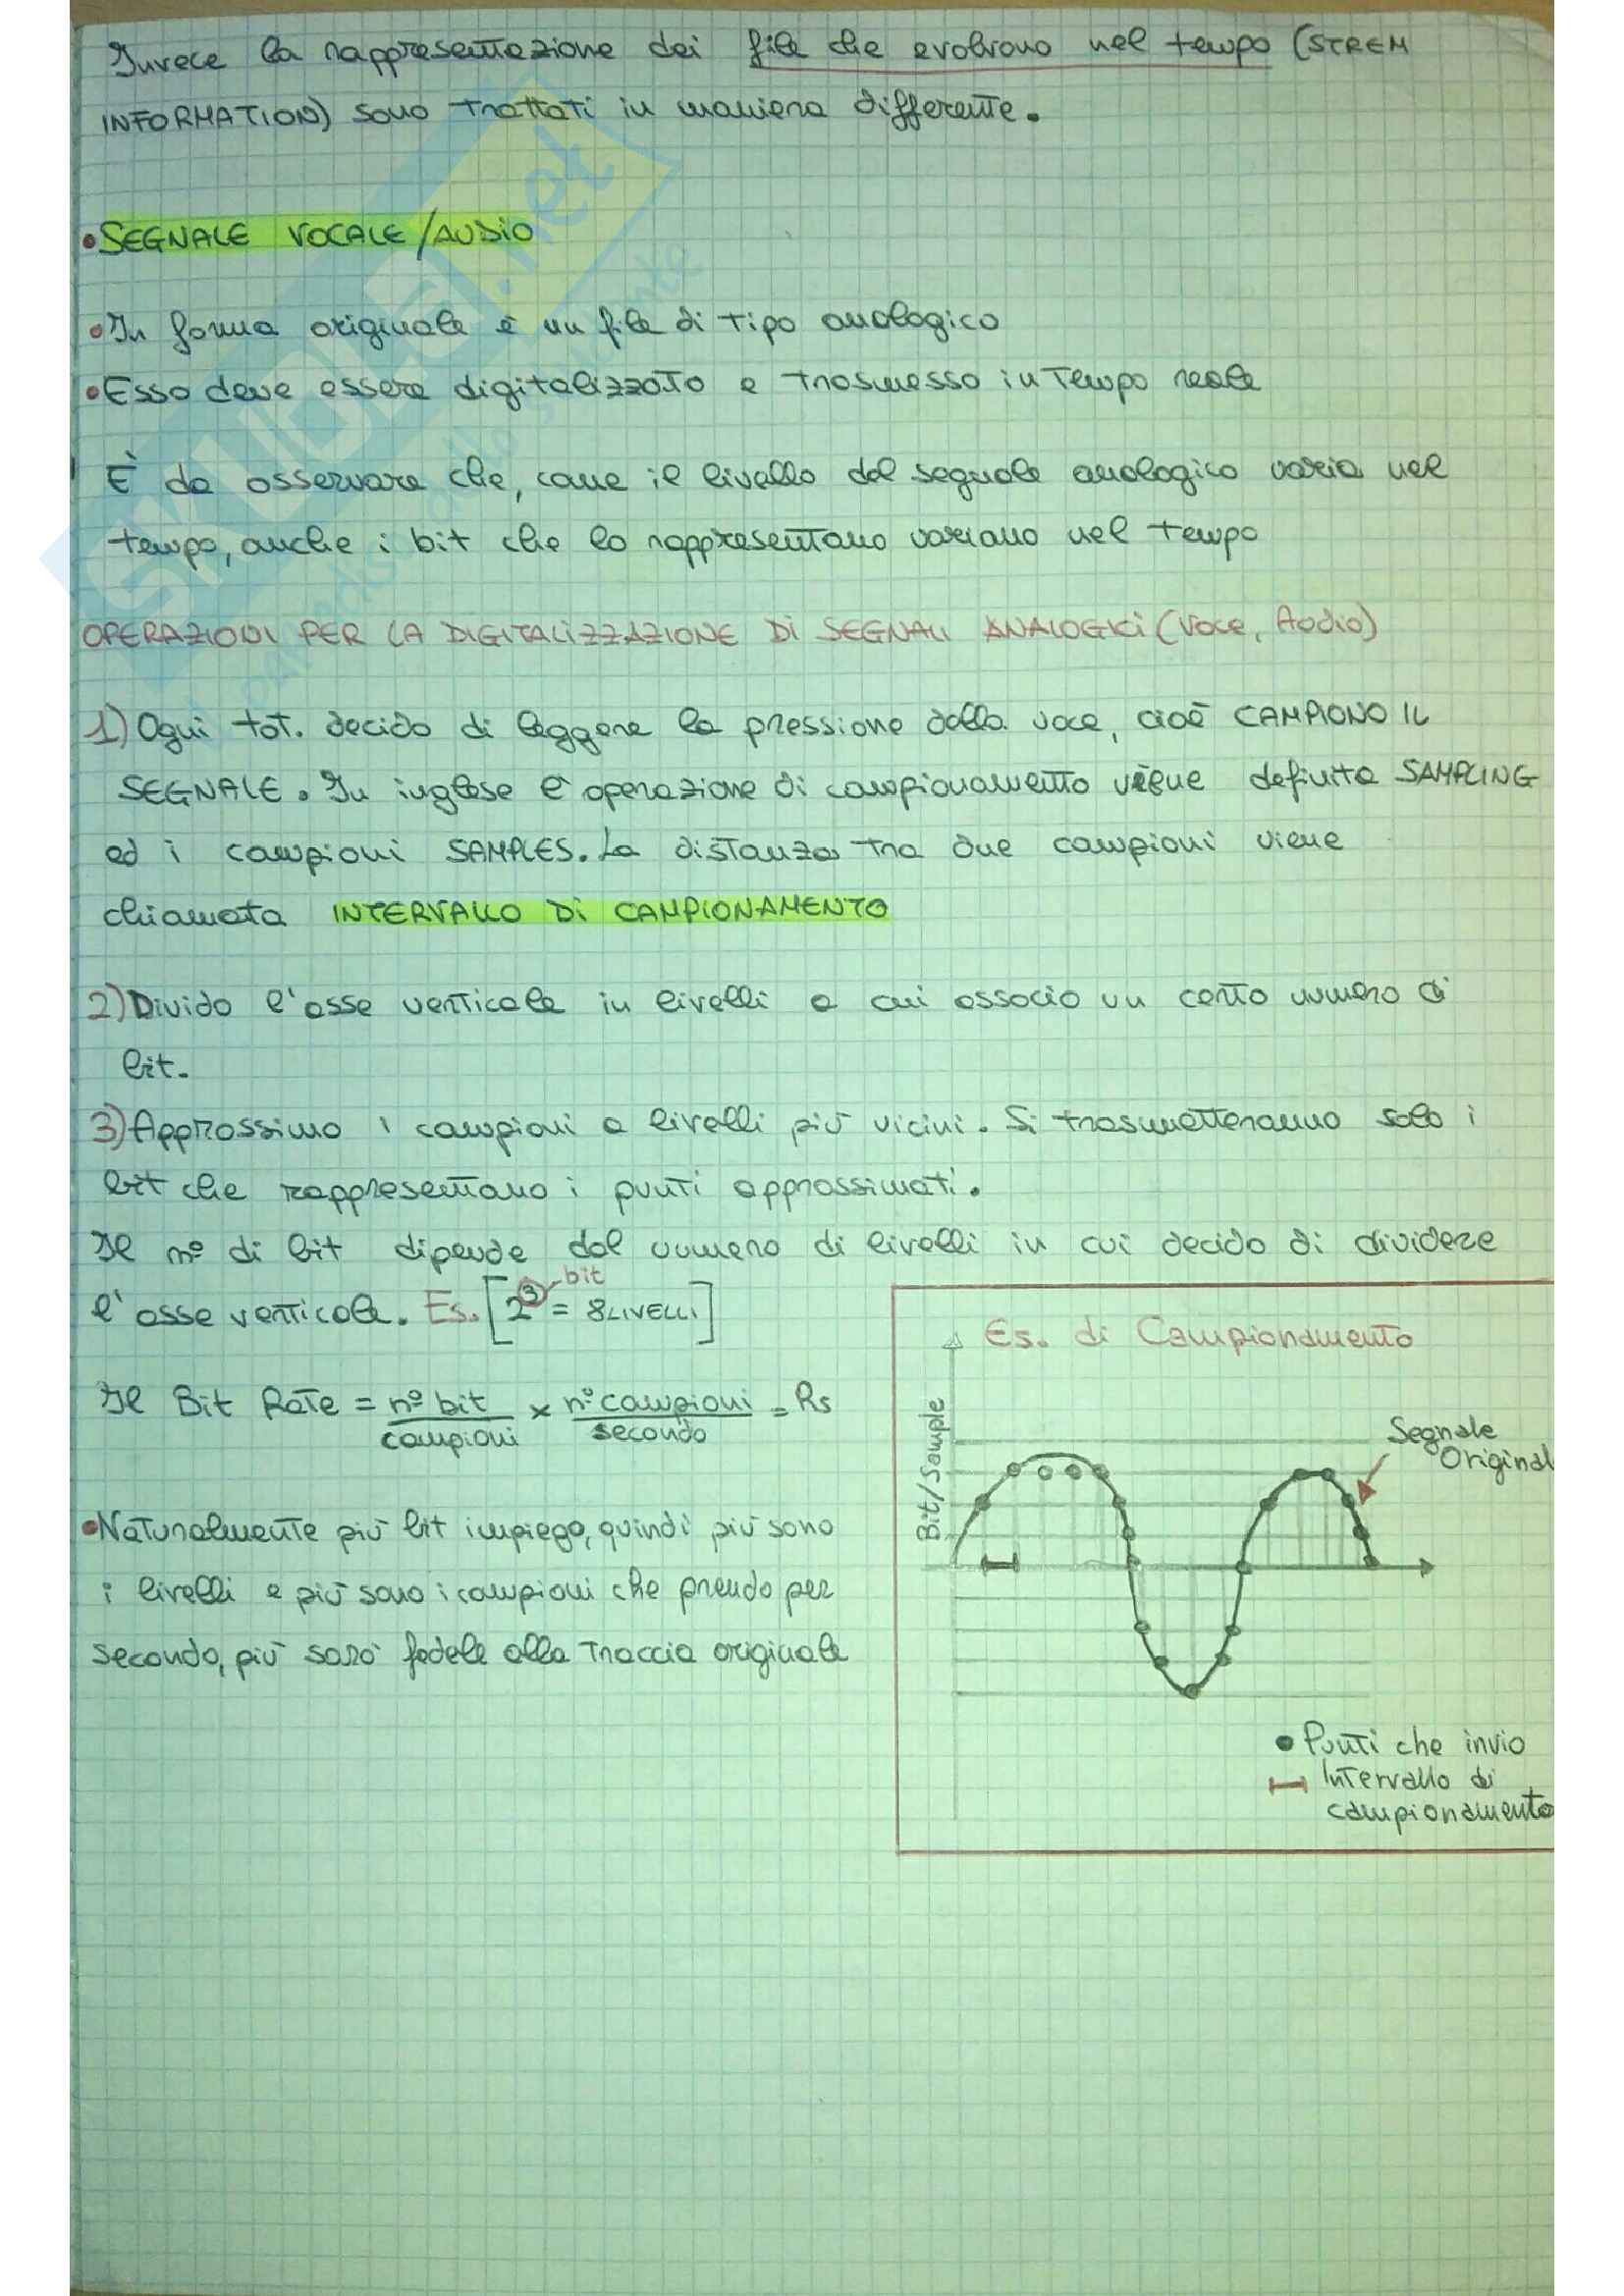 Invece la rappresentazione dei file che evolvono nel tempo (STREM
INFORMATION) sono trattati in maniera differente.
• SEGNALE VOCALE/AUDIO
• In forma originale è un file di tipo analogico
• Esso deve essere digitalizzato e trasmesso in tempo reale
È da osservare che, come il livello del segnale analogico varia nel
tempo, anche i bit che lo rappresentano variano nel tempo
OPERAZIONI PER LA DIGITALIZZAZIONE DI SEGNALI ANALOGICI (Voce, Audio)
1) Ogni tot. decido di leggere la pressione della voce, cioè CAMPIONO IL
SEGNALE. In inglese l'operazione di campionamento viene definita SAMPLING
ed i campioni SAMPLES. La distanza tra due campioni viene
chiamata INTERVALLO DI CAMPIONAMENTO
2) Divido l'asse verticale in livelli a cui associo un certo numero di
bit.
3) Approssimo i campioni a livelli più vicini. Si trasmetteranno solo i
bit che rappresentano i punti approssimati.
Il n° di bit dipende dal numero di livelli in cui decido di dividere
l'asse verticale. Es. [2³ = 8 LIVELLI]
bit
Il Bit Rate = n° bit/campioni × n° campioni/secondo = Rs
• Naturalmente più bit impiego, quindi più sono
i livelli e più sono i campioni che prendo per
secondo, più sarò fedele alla traccia originale
Es. di Campionamento
Bit/Sample
Segnale
Original
• Punti che invio
Intervallo di
campionamento
SKUOLA.net